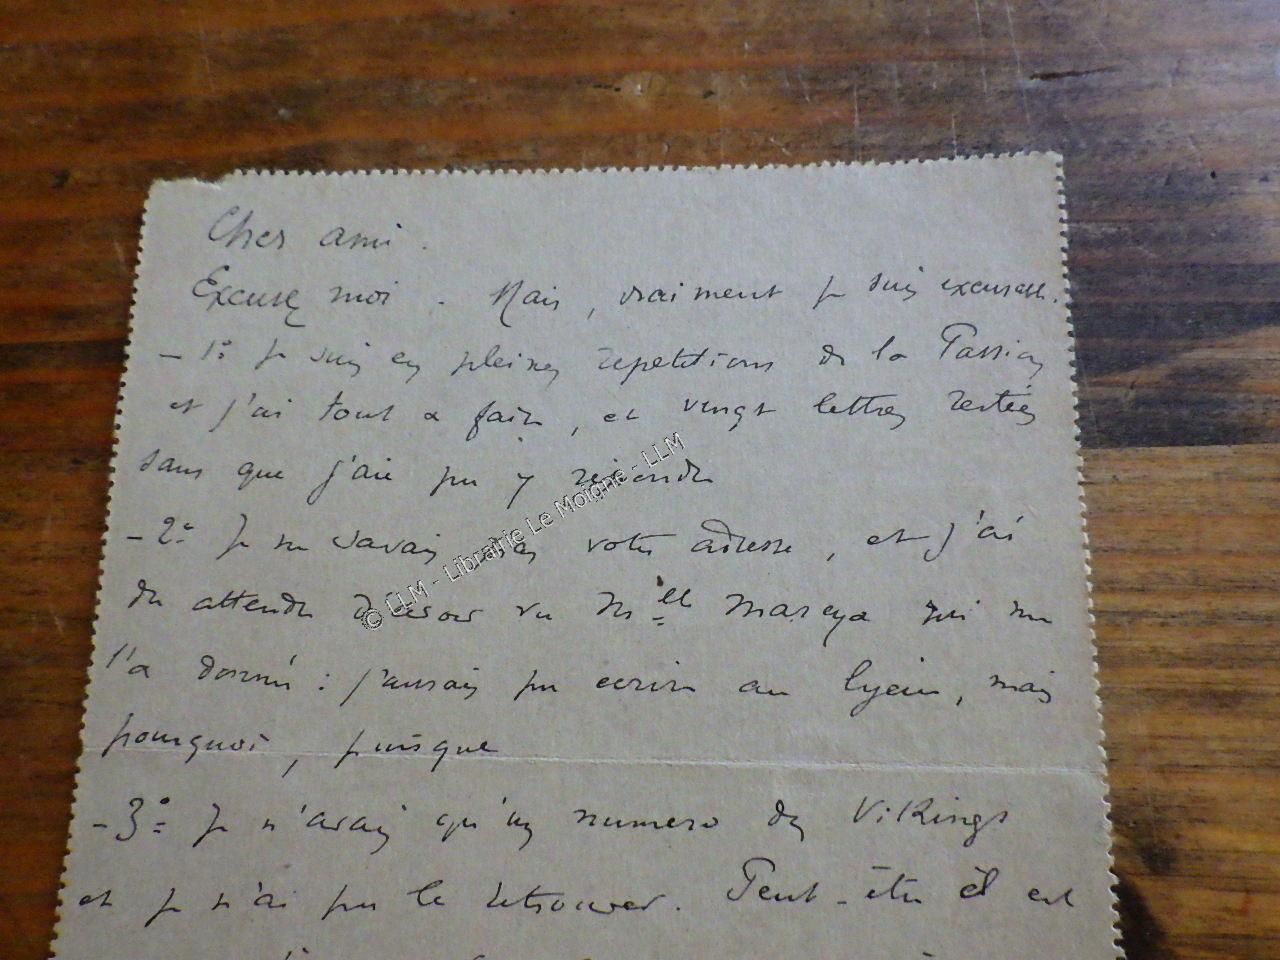 Cher ami.
Excusez moi. Mais, vraiment je suis excusable.
- 1º Je suis en pleines repetitions de la Passion
et j'ai tout a faire, et vingt lettres restées
sans que j'aie pu y repondre
- 2º Je ne savais pas votre adresse, et j'ai
du attendre d'avoir vu Mlle Mareya qui me
l'a donné : j'aurais pu ecrire au lycée, mais
pourquoi, puisque
- 3º Je n'avais qu'un numero des Vikings
et je n'ai pu le retrouver. Peut-être est
© LLM - Librairie Le Moigne - LLM